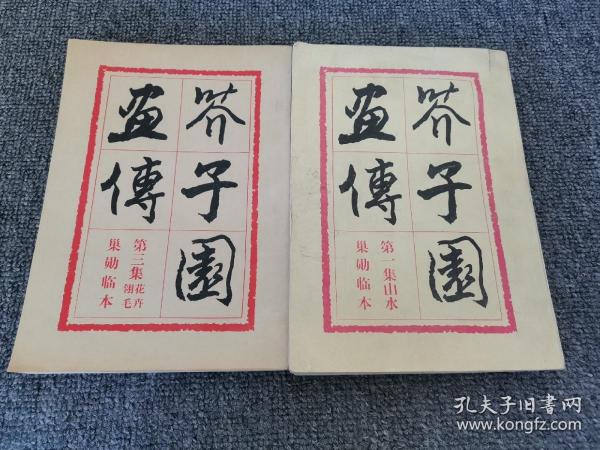 芥子園
畫傳
第三集花卉翎毛
巢勋临本
芥子園
畫傳
第一集山水
巢勋临本
孔夫子旧书网
www.kongfz.com